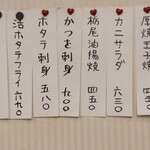 厚焼玉子焼
カニサラダ 六三〇
栃尾油揚焼 四五〇
かつを刺身 九〇〇
ホタテ刺身 五八〇
活ホタテフライ 六九〇